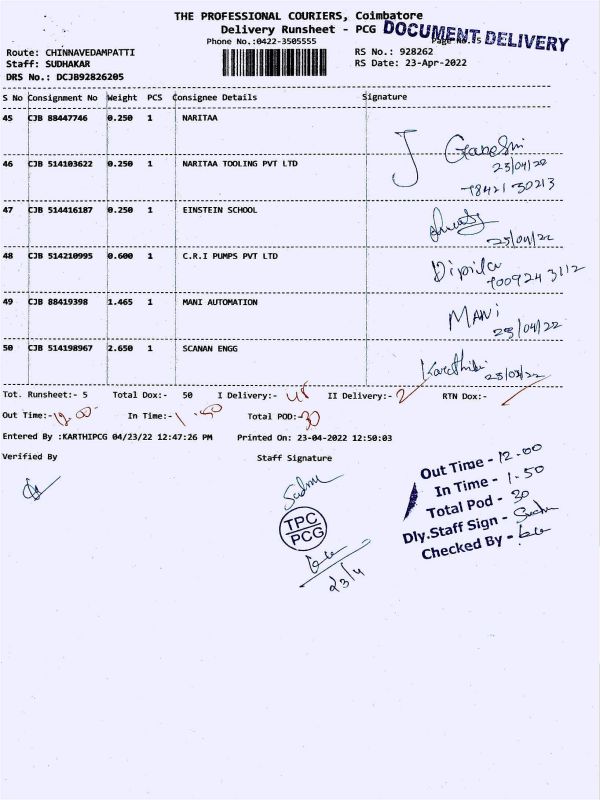 THE PROFESSIONAL COURIERS, Coimbatore
Delivery Runsheet - PCG
DOCUMENT DELIVERY
Phone No.:0422-3505555
Route: CHINNAVEDAMPATTI
RS No.: 928262
Staff: SUDHAKAR
RS Date: 23-Apr-2022
DRS No.: DCJB92826205
S No Consignment No Weight PCS Consignee Details Signature
45 CJB 88447746 0.250 1 NARITAA
46 CJB 514103622 0.250 1 NARITAA TOOLING PVT LTD
23/04/22
78421 30213
47 CJB 514416187 0.250 1 EINSTEIN SCHOOL
23/04/22
48 CJB 514210995 0.600 1 C.R.I PUMPS PVT LTD
49 CJB 88419398 1.465 1 MANI AUTOMATION MANi
23/04/22
50 CJB 514198967 2.650 1 SCANAN ENGG
Tot. Runsheet:- 5 Total Dox:- 50 I Delivery:- 48 II Delivery:- 2 RTN Dox:-
Out Time:- 12.00 In Time:- 1.50 Total POD:- 30
Entered By :KARTHIPCG 04/23/22 12:47:26 PM Printed On: 23-04-2022 12:50:03
Verified By Staff Signature
TPC
PCG
23/4
Out Time - 12.00
In Time - 1.50
Total Pod - 30
Dly.Staff Sign -
Checked By -